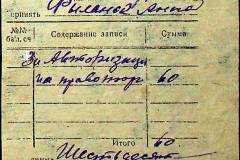 принять Филанов
№№ бал. сч Содержание записи Сумма
За Авторизаци
на право тор 60
Итого 60
Шестьдесят